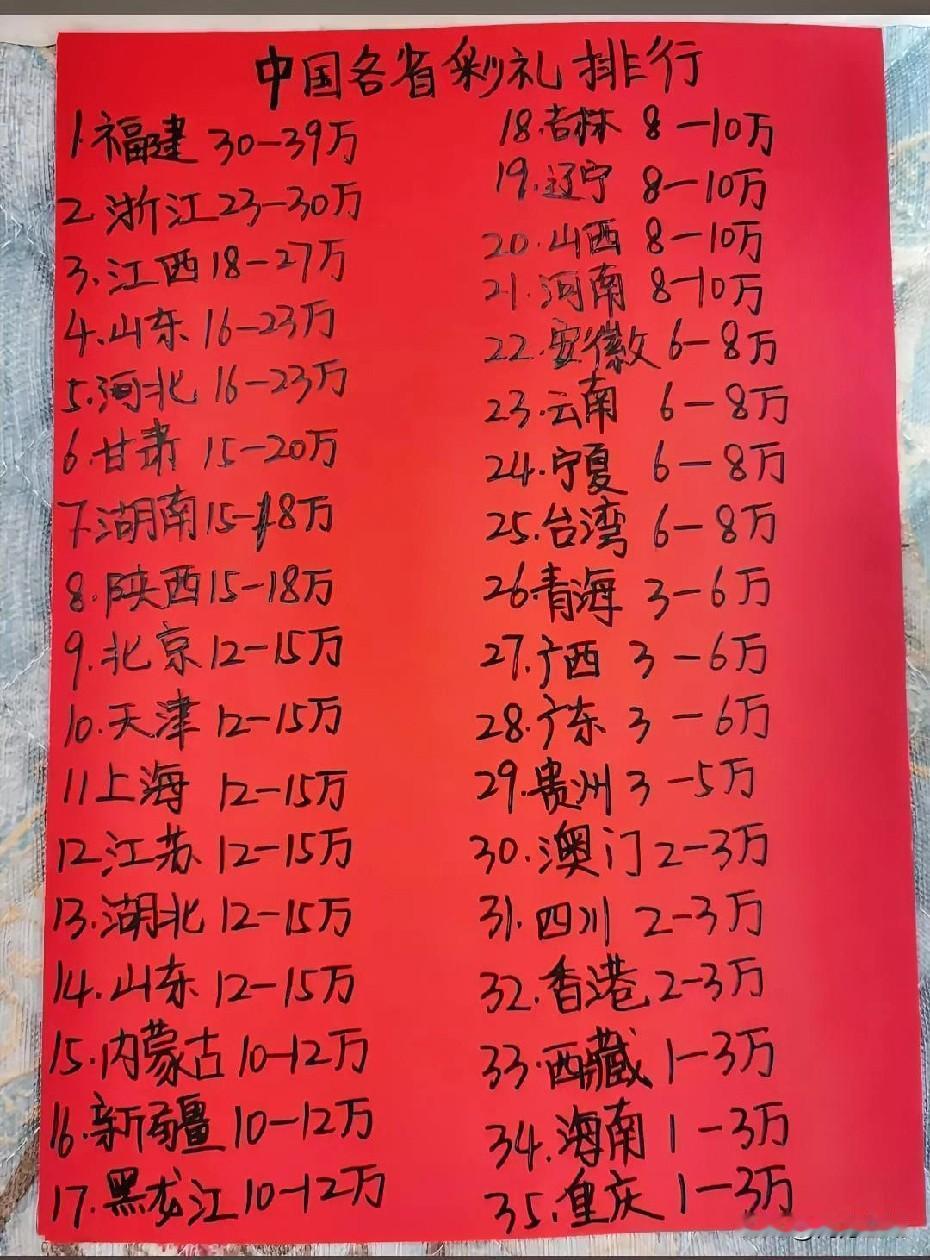 中国各省彩礼排行
1.福建 30-39万
2.浙江23-30万
3.江西18-27万
4.山东16-23万
5.河北 16-23万
6.甘肃 15-20万
7.湖南15-18万
8.陕西15-18万
9.北京12-15万
10.天津12-15万
11上海 12-15万
12江苏 12-15万
13.湖北 12-15万
14.山东12-15万
15.内蒙古10-12万
16.新疆 10-12万
17.黑龙江10-12万
18.吉林 8-10万
19.辽宁 8-10万
20.山西 8-10万
21.河南 8-10万
22.安徽 6-8万
23.云南 6-8万
24.宁夏 6-8万
25.台湾 6-8万
26.青海 3-6万
27.广西 3-6万
28.广东 3-6万
29.贵州 3-5万
30.澳门 2-3万
31.四川 2-3万
32.香港 2-3万
33.西藏 1-3万
34.海南 1-3万
35.重庆 1-3万